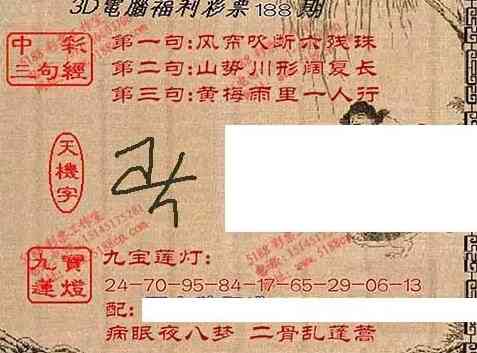 3D電腦福利彩票188期
中彩
三句經
第一句:风帘吹断六残珠
第二句:山势川形阔复长
第三句:黄梅雨里一人行
天機字
九寶
蓮燈
九宝莲灯:
24-70-95-84-17-65-29-06-13
配:
病眼夜八梦 二骨乱莲蒿